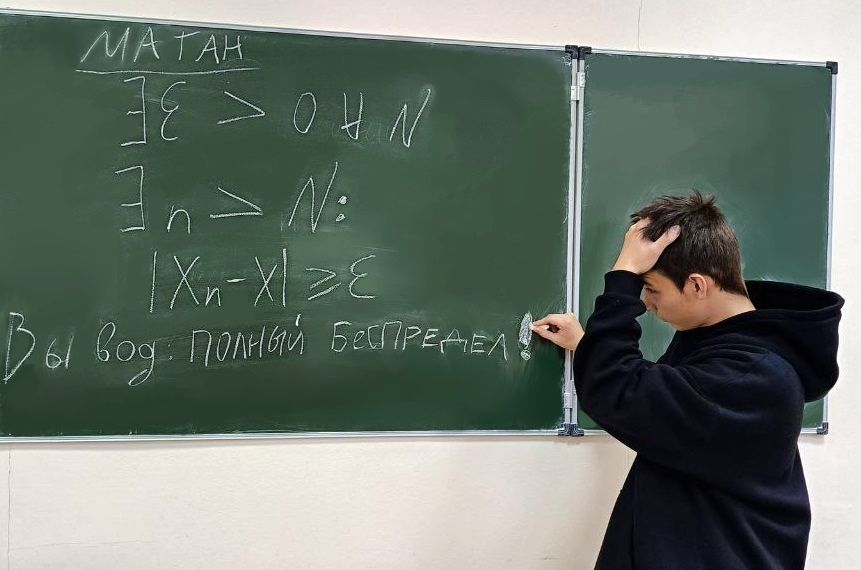 МАТАН
∃ε > 0 ∀ N
∃ n > N:
|Xn-X| ≥ ε
Вывод: ПОЛНЫЙ БЕСПРЕДЕЛ!